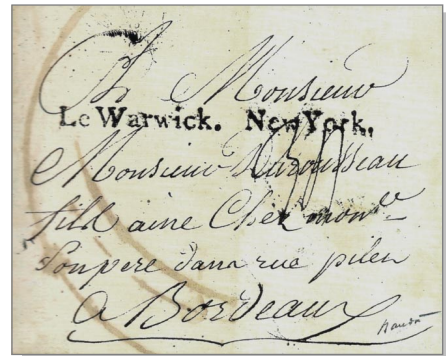 A Monsieur
Le Warwick. New York,
Monsieur Durousseau
fils aine Chez mon
Son pere dans rue
a Bordeaux